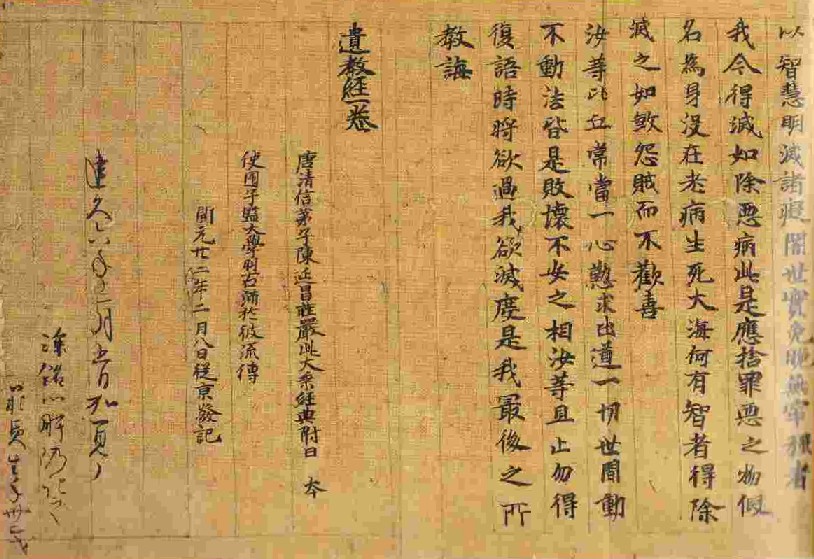 以智慧明滅諸癡闇世實危脆無牢強者
我今得滅如除惡病此是應捨罪惡之物假
名為身沒在老病生死大海何有智者得除
滅之如煞怨賊而不歡喜
汝等比丘常當一心懃求出道一切世間動
不動法皆是敗壞不安之相汝等且止勿得
復語時將欲過我欲滅度是我最後之所
教誨
遺教經一卷
唐清信弟子陳延昌莊嚴此大乘經典附日本
使國子監大學朋古滿於彼流傳
開元廿二年二月八日從京發記
建久六年二月五日